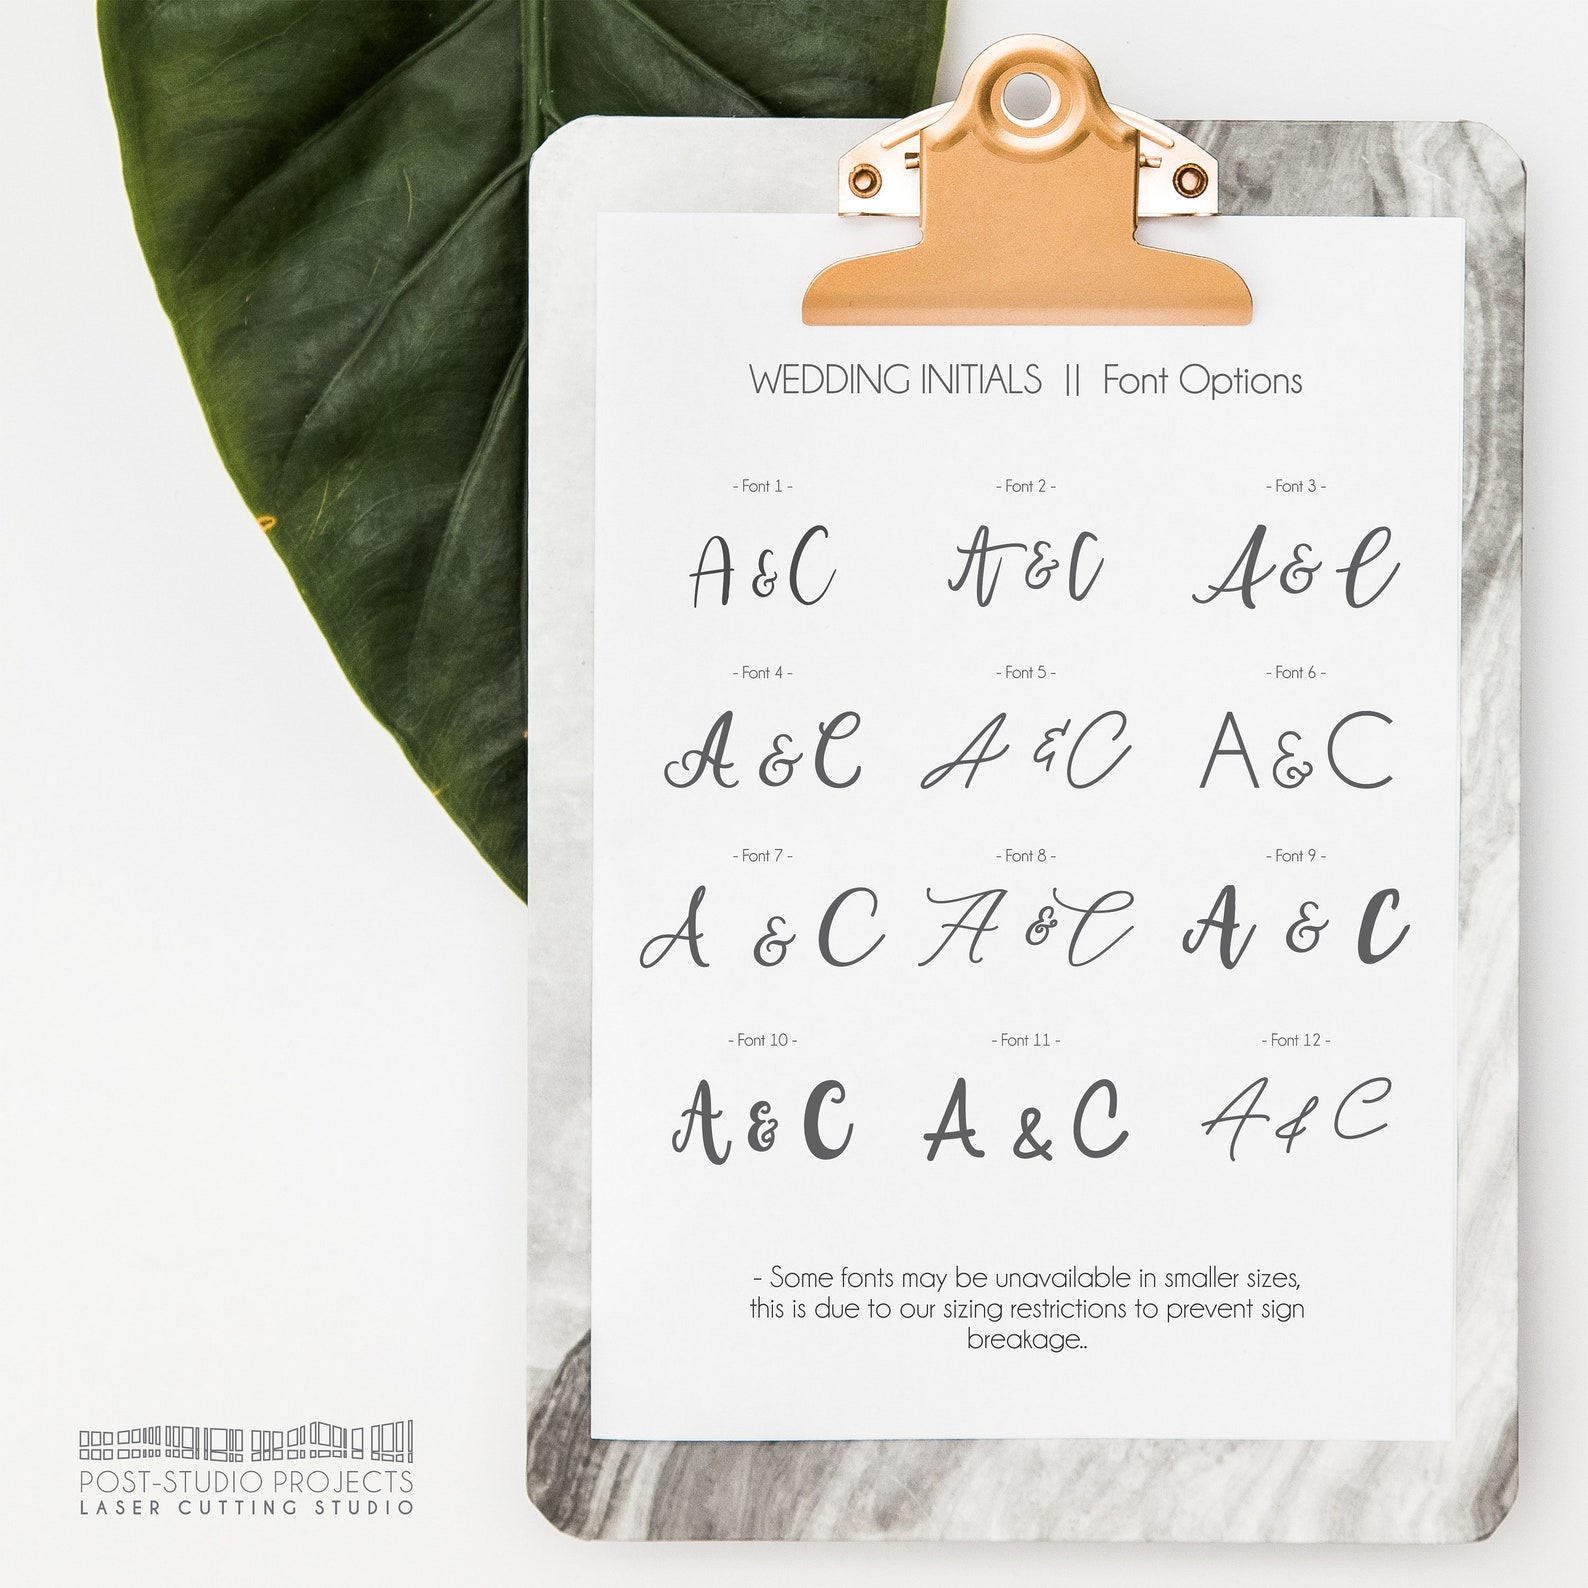 WEDDING INITIALS || Font Options
- Font 1 - - Font 2 - - Font 3 -
A & C A & C A & C
- Font 4 - - Font 5 - - Font 6 -
A & C A & C A & C
- Font 7 - - Font 8 - - Font 9 -
A & C A & C A & C
- Font 10 - - Font 11 - - Font 12 -
A & C A & C A & C
- Some fonts may be unavailable in smaller sizes,
this is due to our sizing restrictions to prevent sign
breakage..
POST-STUDIO PROJECTS
LASER CUTTING STUDIO